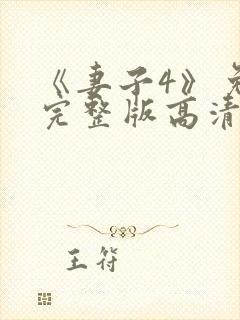 《妻子4》免
完整版高清
王符